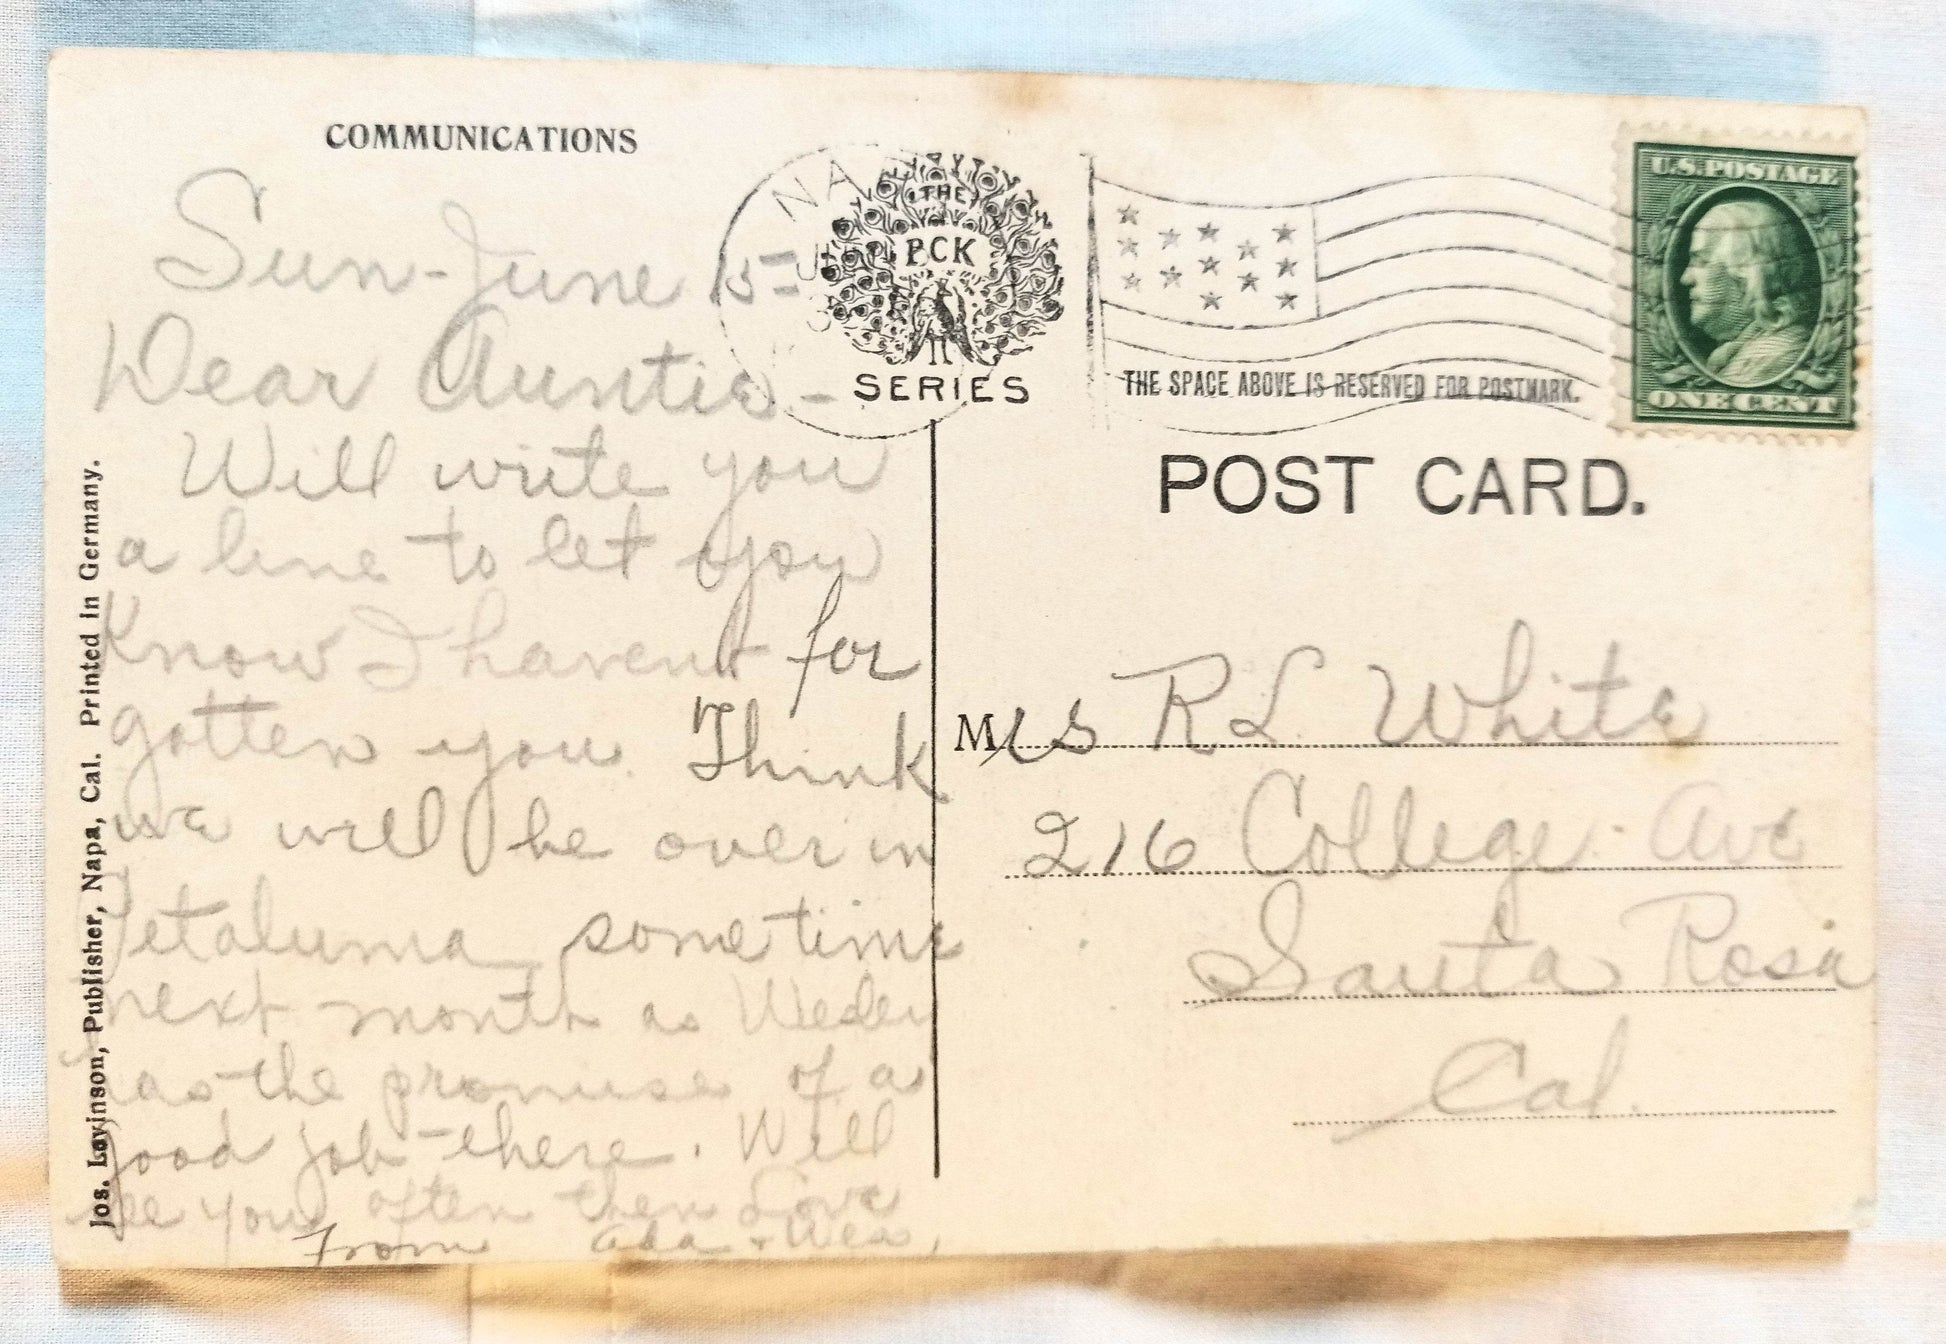 COMMUNICATIONS
Sun-June 15=
Dear Auntie -
Will write you
a line to let you
Know I havent for
gotten you. Think
we will be over in
Petaluma sometime
next month as
has the promise of a
good job there. Will
see you often then Love
From Ada +
Jos. Levinson, Publisher, Napa, Cal. Printed in Germany.
NA
THE
PCK
SERIES
THE SPACE ABOVE IS RESERVED FOR POSTMARK.
U.S. POSTAGE
ONE CENT
POST CARD.
Mrs R L White
216 College Ave
Santa Rosa
Cal.